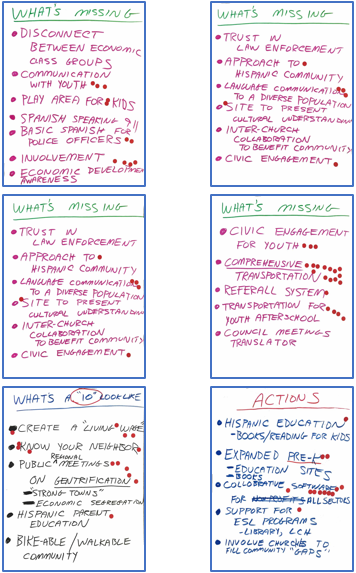 WHAT'S MISSING
DISCONNECT
BETWEEN ECONOMIC
CLASS GROUPS
COMMUNICATION
WITH YOUTH
PLAY AREA FOR KIDS
SPANISH SPEAKING 911
BASIC SPANISH FOR
POLICE OFFICERS
INVOLVEMENT
ECONOMIC DEVELOPMENT
AWARENESS
WHAT'S MISSING
TRUST IN
LAW ENFORCEMENT
APPROACH TO
HISPANIC COMMUNITY
LANGUAGE COMMUNICATION
TO A DIVERSE POPULATION
SITE TO PRESENT
CULTURAL UNDERSTANDING
INTER-CHURCH
COLLABORATION
TO BENEFIT COMMUNITY
CIVIC ENGAGEMENT
WHAT'S MISSING
TRUST IN
LAW ENFORCEMENT
APPROACH TO
HISPANIC COMMUNITY
LANGUAGE COMMUNICATION
TO A DIVERSE POPULATION
SITE TO PRESENT
CULTURAL UNDERSTANDING
INTER-CHURCH
COLLABORATION
TO BENEFIT COMMUNITY
CIVIC ENGAGEMENT
WHAT'S MISSING
CIVIC ENGAGEMENT
FOR YOUTH
COMPREHENSIVE
TRANSPORTATION
REFERALL SYSTEM
TRANSPORTATION FOR
YOUTH AFTERSCHOOL
COUNCIL MEETINGS
TRANSLATOR
WHAT'S A "10" LOOK LIKE
CREATE A "LIVING WAGE"
KNOW YOUR NEIGHBOR
REGIONAL
PUBLIC MEETINGS
ON GENTRIFICATION
- "STRONG TOWNS"
- ECONOMIC SEGREGATION
HISPANIC PARENT
EDUCATION
BIKE-ABLE/WALKABLE
COMMUNITY
ACTIONS
HISPANIC EDUCATION
-BOOKS/READING FOR KIDS
EXPANDED PRE-K
-EDUCATION SITES
-BOOKS
COLLABORATIVE SOFTWARE
FOR NON PROFITS ALL SECTORS
SUPPORT FOR
ESL PROGRAMS
-LIBRARY, LCH
INVOLVE CHURCHES TO
FILL COMMUNITY "GAPS"